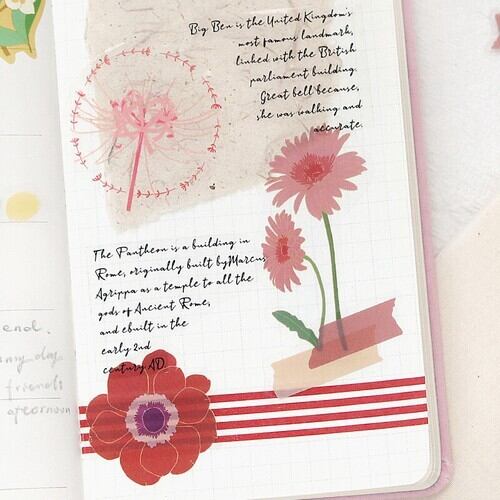 Big Ben is the United Kingdom's
most famous landmark,
linked with the British
parliament building.
Great bell because,
she was walking and
accurate.
The Pantheon is a building in
Rome, originally built byMarcus
Agrippa as a temple to all the
gods of Ancient Rome,
and ebuilt in the
early 2nd
century AD.
end.
day
friends
afternoon